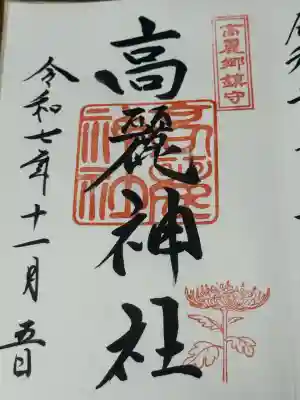 高麗郷鎮守
高麗神社
高麗
神社
令和七年十一月五日